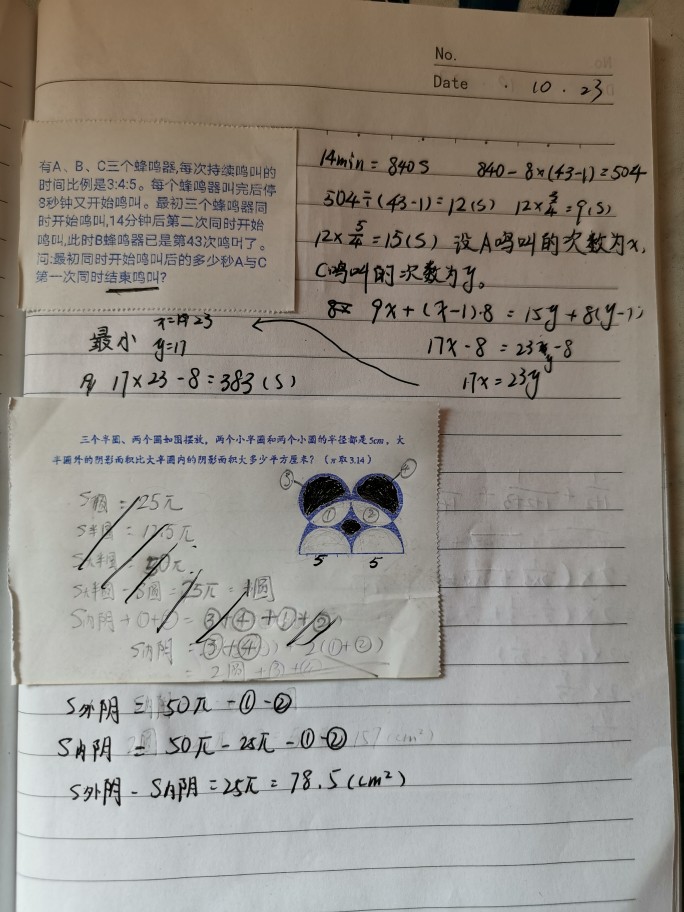 No.
Date . 10 . 23
有A、B、C三个蜂鸣器,每次持续鸣叫的
时间比例是3:4:5。每个蜂鸣器叫完后停
8秒钟又开始鸣叫。最初三个蜂鸣器同
时开始鸣叫,14分钟后第二次同时开始
鸣叫,此时B蜂鸣器已是第43次鸣叫了。
问:最初同时开始鸣叫后的多少秒A与C
第一次同时结束鸣叫?
14min = 840S 840-8×(43-1)=504
504÷(43-1)=12(S) 12×3/4=9(S)
12×5/4=15(S) 设A鸣叫的次数为x,
C鸣叫的次数为y。
9x+(x-1)·8 = 15y+8(y-1)
17x-8 = 23y-8
17x=23y
最小 x=23
y=17
17×23-8=383(S)
三个半圆、两个圆如图摆放,两个小半圆和两个小圆的半径都是5cm,大
半圆外的阴影面积比大半圆内的阴影面积大多少平方厘米?(π取3.14)
③ ④
① ②
5 5
S圆 = 25π
S半圆 = 12.5π
S大半圆 = 50π
S大半圆 - S圆 = 25π = 1圆
S内阴 + ①+② = ③+④+①+②
S外阴 = 50π-①-②
S内阴 = 50π-25π-①-②
S外阴 - S内阴 = 25π = 78.5(cm²)